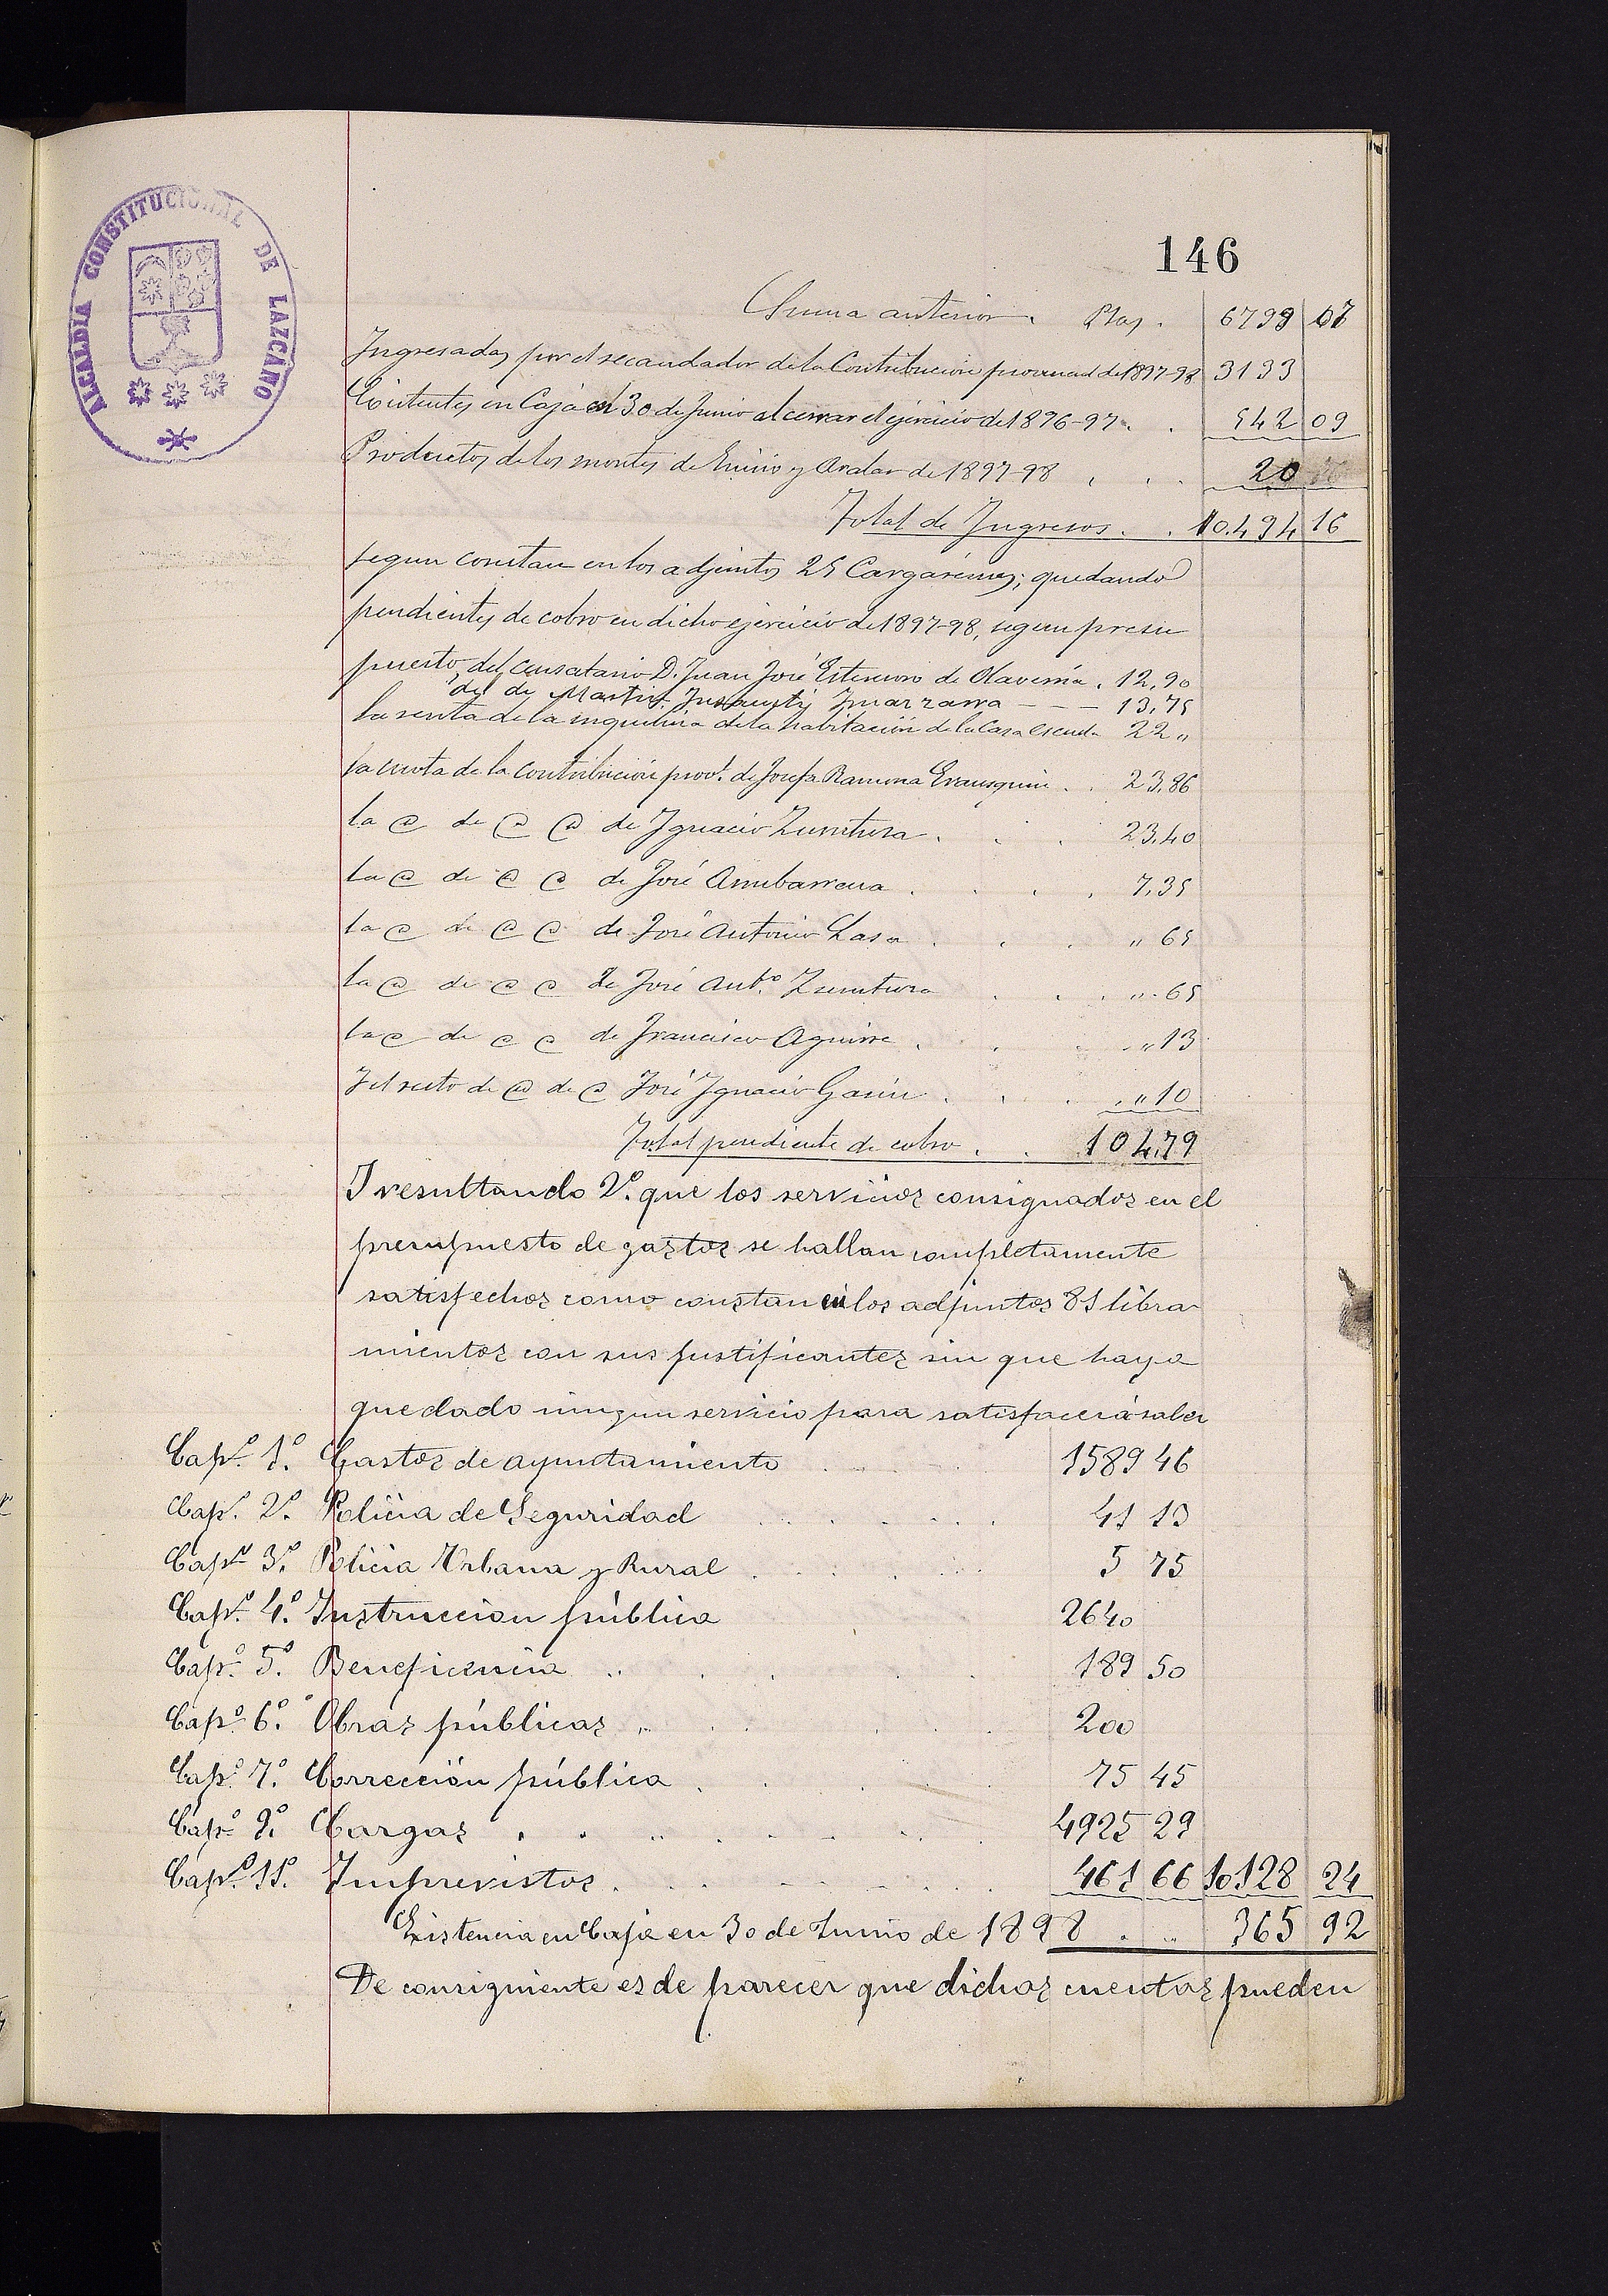 146
ALCALDIA CONSTITUCIONAL DE LAZCANO
Suma anterior. Ptas. 6799 07
Ingresadas por el recaudador de la Contribucion provincial de 1897-98 3133
Existentes en Caja en 30 de Junio al cerrar el ejercicio de 1896-97. . 542 09
Productos de los montes de Enirio y Aralar de 1897-98 . . . 20
Total de Ingresos. . 10.494 16
segun constan en los adjuntos 25 Cargarémes; quedando
pendientes de cobro en dicho ejercicio de 1897-98, segun presu
puesto, del censatario D. Juan José Estensoro de Olaverria. 12,90
del de Martin Insausti Imazzarra - - - 13,75
la renta de la inquilina de la habitación de la Casa escuela 22 "
la cuota de la contribución provl. de Josefa Ramona Erausquin . . 23,86
la @ de @ @ de Ignacio Zurutuza . . . 23,40
la @ de @ @ de José Arrubarrena . . . . 7,35
la @ de @ @ de José Antonio Lasa . . . " 65
la @ de @ @ de José Antº Zurutuza . . . " 65
la @ de @ @ de Francisco Aguirre . . . . " 13
I el resto de @ de @ José Ignacio Garin . . . . " 10
Total pendiente de cobro . . 104,79
I resultando 2º. que los servicios consignados en el
presupuesto de gastos se hallan completamente
satisfechos como constan en los adjuntos 81 libra-
mientos con sus justificantes sin que haya
quedado ningun servicio para satisfacer á saber
Capº 1º. Gastos de ayuntamiento 1589 46
Capº 2º. Policia de Seguridad 41 13
Capº 3º. Policia Urbana y Rural 5 75
Capº 4º. Instruccion pública 2640
Capº 5º. Beneficencia 189 50
Capº 6º. Obras públicas 200
Capº 7º. Corrección pública 75 45
Capº 9º. Cargas 4925 29
Capº 11º. Imprevistos 461 66 10128 24
Existencia en Caja en 30 de Junio de 1898 . . 365 92
De consiguiente es de parecer que dichas cuentas pueden